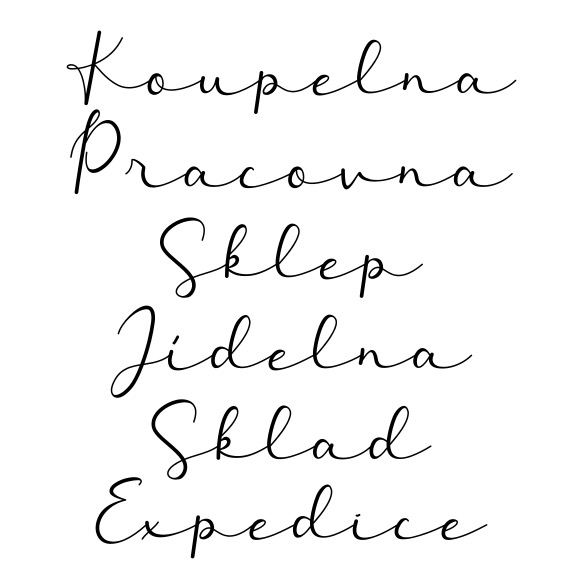 Koupelna
Pracovna
Sklep
Jídelna
Sklad
Expedice